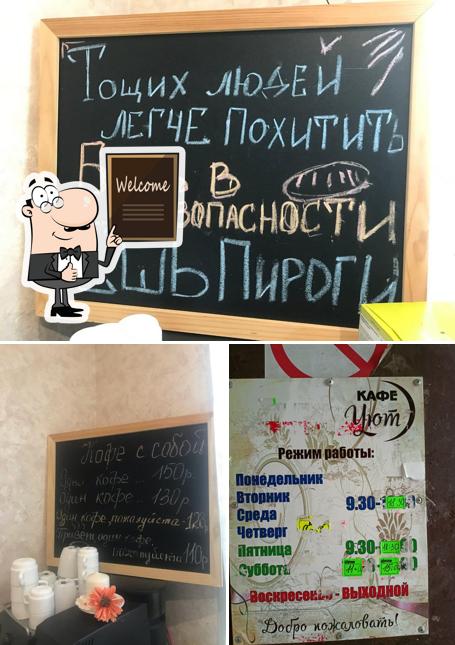 Тощих людей
легче похитить
в
Welcome
Пироги
Кофе с собой
Один кофе... 150р
Один кофе... 130р
Один кофе, пожалуйста - 120р
Привет, один кофе,
пожалуйста 110р
КАФЕ
Уют
Режим работы:
Понедельник
Вторник
9.30-
Среда
Четверг
Пятница
9.30-
Суббота
Воскресенье - ВЫХОДНОЙ
Добро пожаловать!